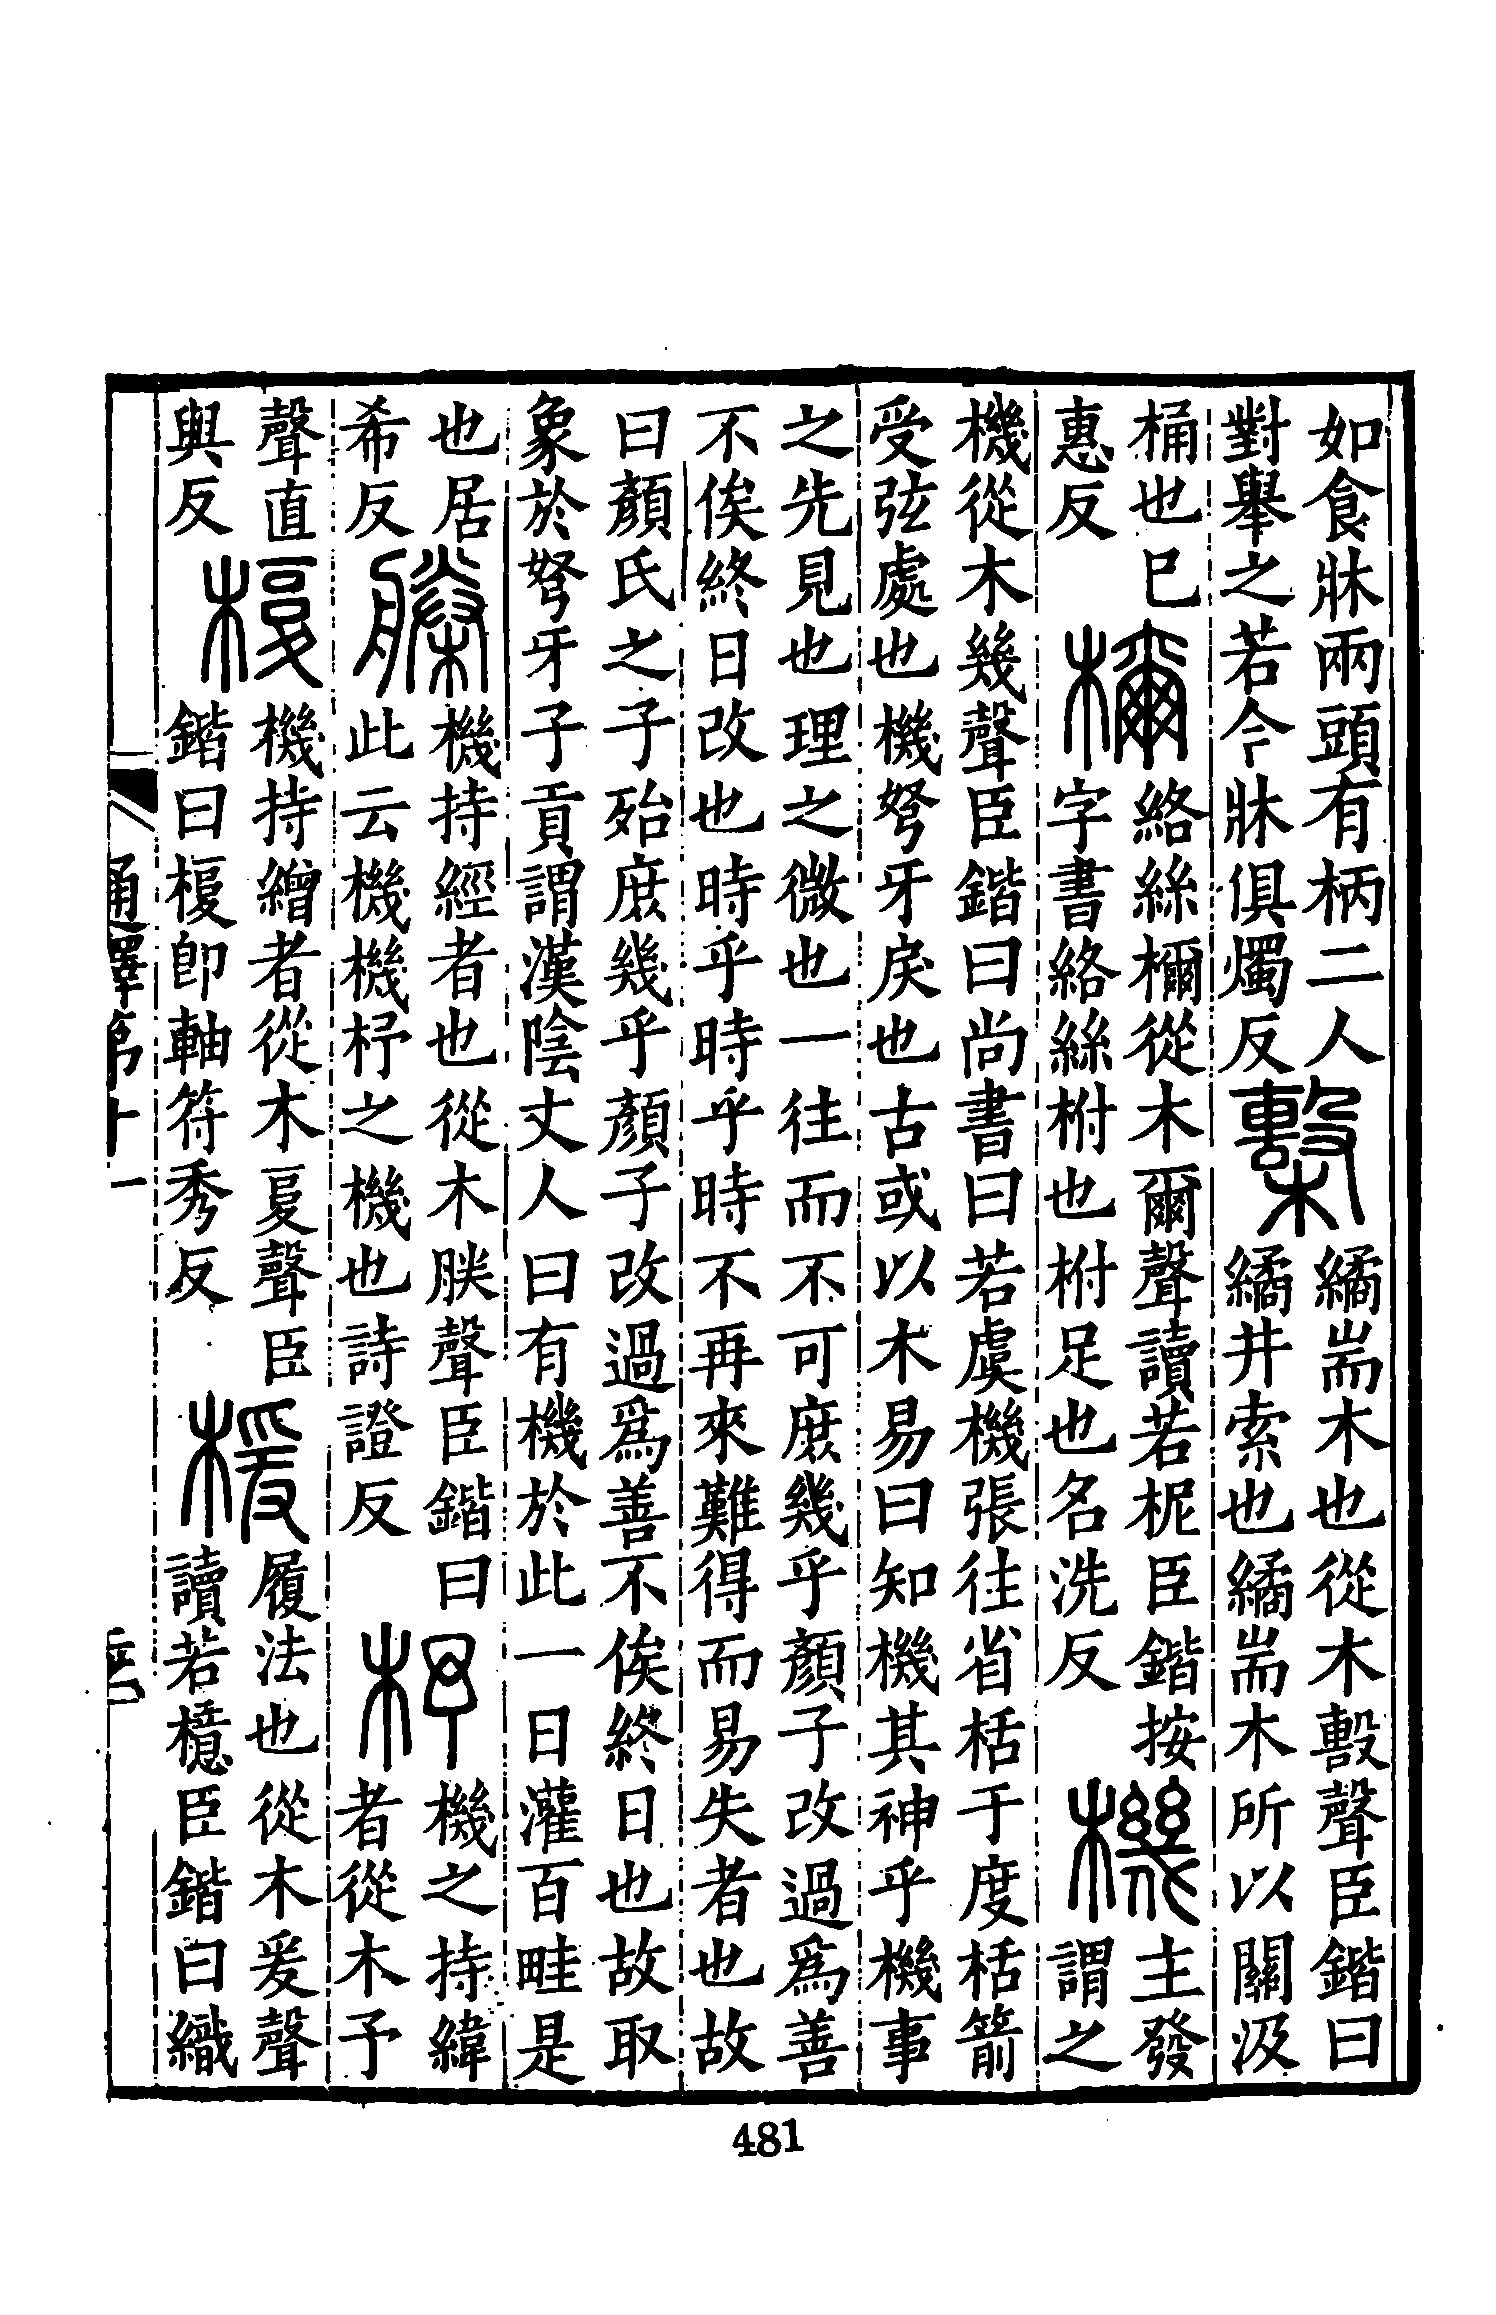 如食牀兩頭有柄二人
對舉之若今牀俱燭反
檕
繘耑木也從木毄聲臣鍇曰
繘井索也繘耑木所以關汲
桶也巳
惠反
檷
絡絲檷從木爾聲讀若柅臣鍇按
字書絡絲柎也柎足也名洗反
機
主發
謂之
機從木幾聲臣鍇曰尚書曰若虞機張往省栝于度栝箭
受弦處也機弩牙戾也古或以木易曰知機其神乎機事
之先見也理之微也一往而不可庶幾乎顏子改過爲善
不俟終日改也時乎時乎時不再來難得而易失者也故
曰顏氏之子殆庶幾乎顏子改過爲善不俟終日也故取
象於弩牙子貢謂漢陰丈人曰有機於此一日灌百畦是
也居
希反
榺
機持經者也從木朕聲臣鍇曰
此云機機杼之機也詩證反
杼
機之持緯
者從木予
聲直
與反
椱
機持繒者從木复聲臣
鍇曰椱卽軸符秀反
楥
履法也從木爰聲
讀若檍臣鍇曰織
通釋第十一
481